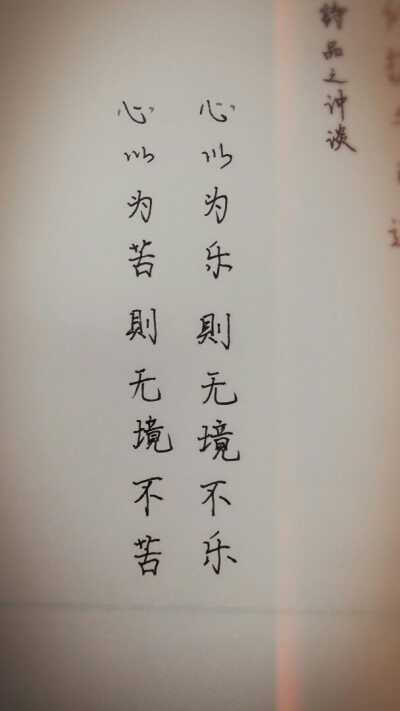 詩品之沖谈
心以为乐則无境不乐
心以为苦則无境不苦